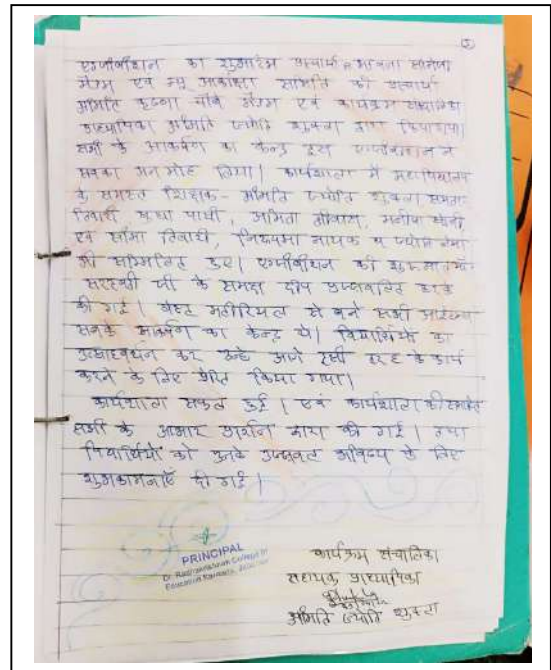 एग्जीबीशन का शुभारंभ प्राचार्या
मैम एवं न्यू आकांक्षा समिति की प्राचार्या
श्रीमति कृष्णा चौबे मैम एवं कार्यक्रम संचालिका
प्राध्यापिका श्रीमति ज्योति शुक्ला द्वारा किया गया।
सभी के आकर्षण का केन्द्र इस एग्जीबीशन ने
सबका मन मोह लिया। कार्यशाला में महाविद्यालय
के समस्त शिक्षक - श्रीमति ज्योति शुक्ला
तिवारी,
एवं सीमा तिवारी, निरूपमा नायक व ज्योति
भी सम्मिलित हुए। एग्जीबीशन की शुरूआत
सरस्वती जी के समक्ष दीप प्रज्जवलित करके
की गई। वेस्ट मटीरियल से बने सभी
सबके आकर्षण का केन्द्र थे। विद्यार्थियों का
उत्साहवर्धन कर उन्हें आगे इसी तरह के कार्य
करने के लिए प्रेरित किया गया।
कार्यशाला सफल हुई। एवं कार्यशाला की समाप्ति
सभी के आभार प्रदर्शन द्वारा की गई। तथा
विद्यार्थियों को उनके उज्जवल भविष्य के लिए
शुभकामनाएँ दी गई।
PRINCIPAL
Dr. Radhakrishnan College of
Education
कार्यक्रम संचालिका
सहायक प्राध्यापिका
श्रीमति ज्योति शुक्ला